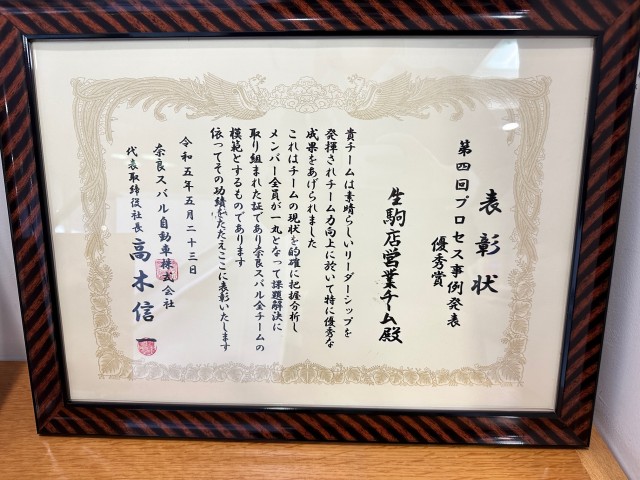 表彰状
第四回プロセス事例発表
優秀賞
生駒店営業チーム殿
貴チームは素晴らしいリーダーシップを
発揮されチーム力向上に於いて特に優秀な
成果をあげられました
これはチームの現状を的確に把握分析し
メンバー全員が一丸となって課題解決に
取り組まれた証であり奈良スバル全チームの
模範とするものであります
依ってその功績をたたえここに表彰いたします
令和五年五月二十三日
奈良スバル自動車株式会社
代表取締役社長 高木信一